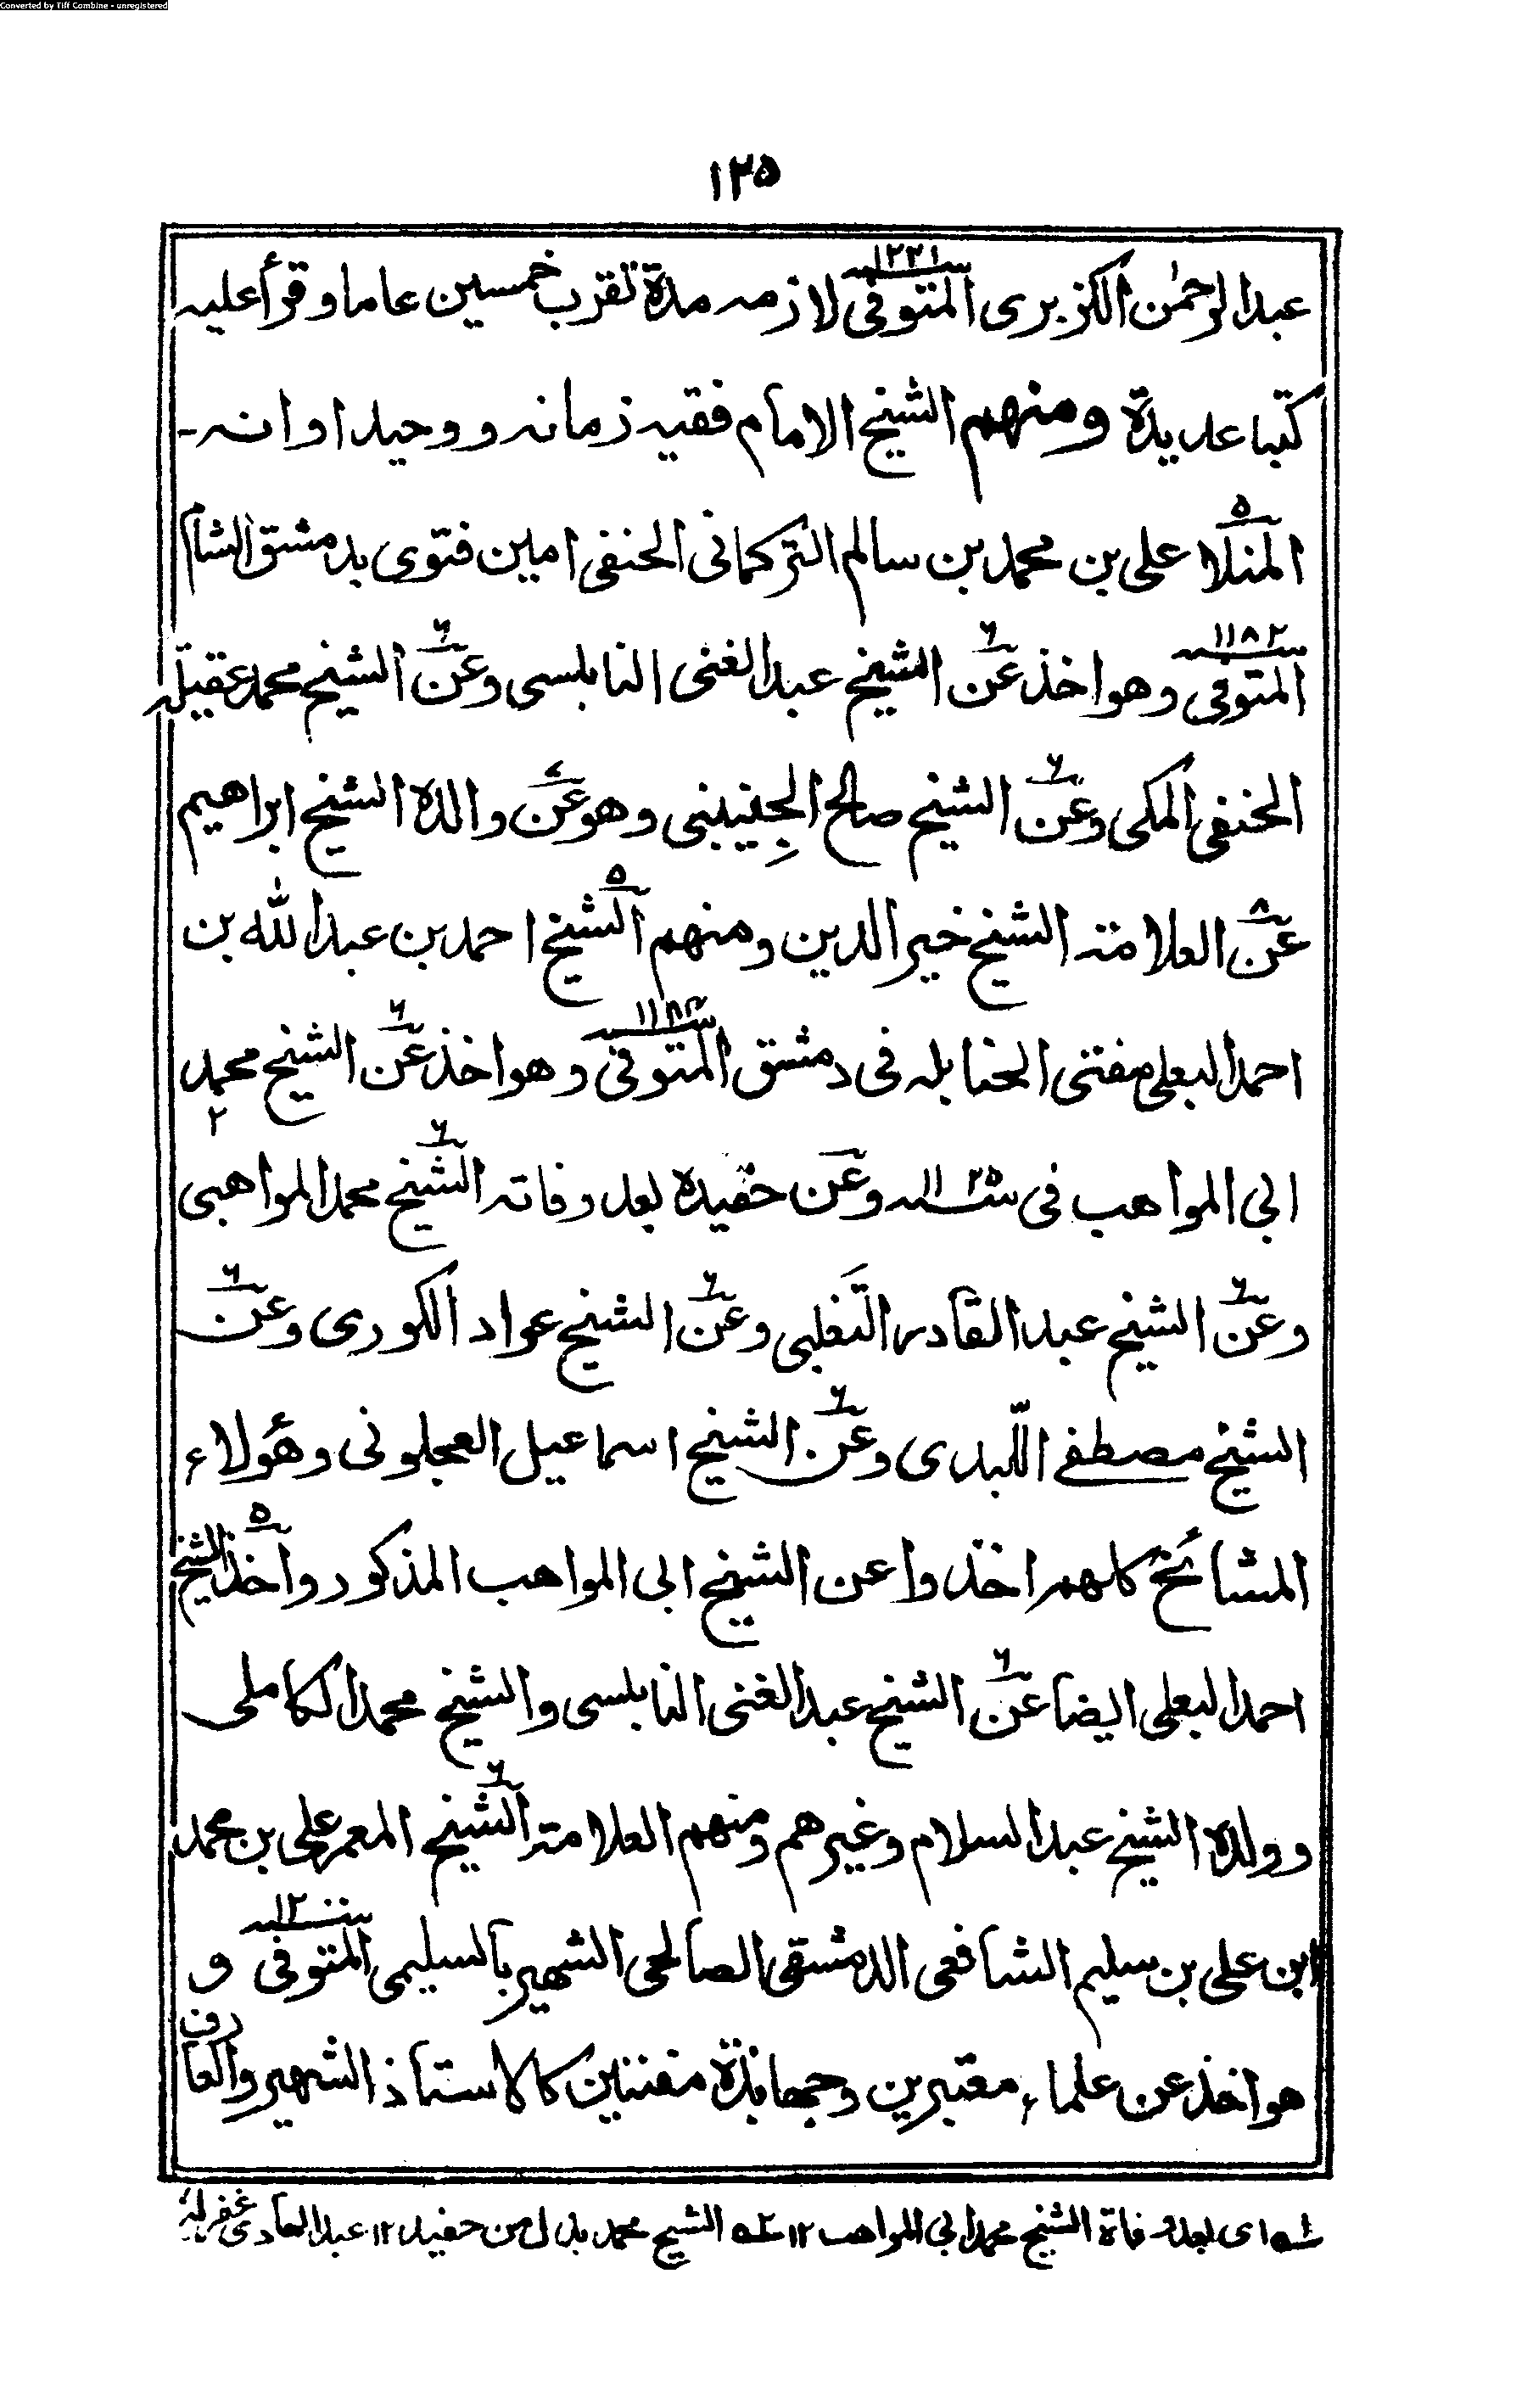 Converted by Tiff Combine - unregistered
١٢٥
عبدالرحمٰن الكزبرى المتوفى ١٢٢١ لازمه مدة تقرب خمسين عاما وقرأ عليه
كتبا عديدة ومنهم الشيخ الامام فقيه زمانه ووحيد اوانه۔
المنلا علی بن محمد بن سالم التركمانى الحنفى امين فتوى بدمشق الشام
المتوفى ١١٨٢ وهو اخذ عن الشيخ عبدالغنى النابلسى وعن الشيخ محمد عقيله
الحنفى المكى وعن الشيخ صالح الجِنينى وهو عن والده الشيخ ابراهيم
عن العلامة الشيخ خير الدين ومنهم الشيخ احمد بن عبدالله بن
احمد البعلى مفتى الحنابله فى دمشق المتوفى وهو اخذ عن الشيخ محمد
ابى المواهب فى ١١٢٥ وعن حفيده بعد وفاته الشيخ محمد المواهبى
وعن الشيخ عبد القادر التَغلبى وعن الشيخ عواد الكورى وعن
الشيخ مصطفے اللّبدى وعن الشيخ اسماعيل العجلونى وهؤلاء
المشائخ كلهم اخذوا عن الشيخ ابى المواهب المذكور واخذ الشيخ
احمد البعلى ايضا عن الشيخ عبد الغنى النابلسى والشيخ محمد الكاملى
وولده الشيخ عبد السلام وغيرهم ومنهم العلامة الشيخ المعمر على بن محمد
ابن على بن سليم الشافعى الدمشقى الصالحى الشهير بالسليمى المتوفى ١٢٠٠ و
هو اخذ عن علماء معتبرين وجهابذة مفننين كالاستاذ الشهير والعارف
اى بعد وفاة الشيخ محمد ابى المواهب ١٢ الشيخ محمد بدل من حفيد ١٢ عبد الهادى غفرله